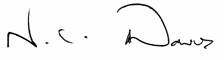 N. C. Davis